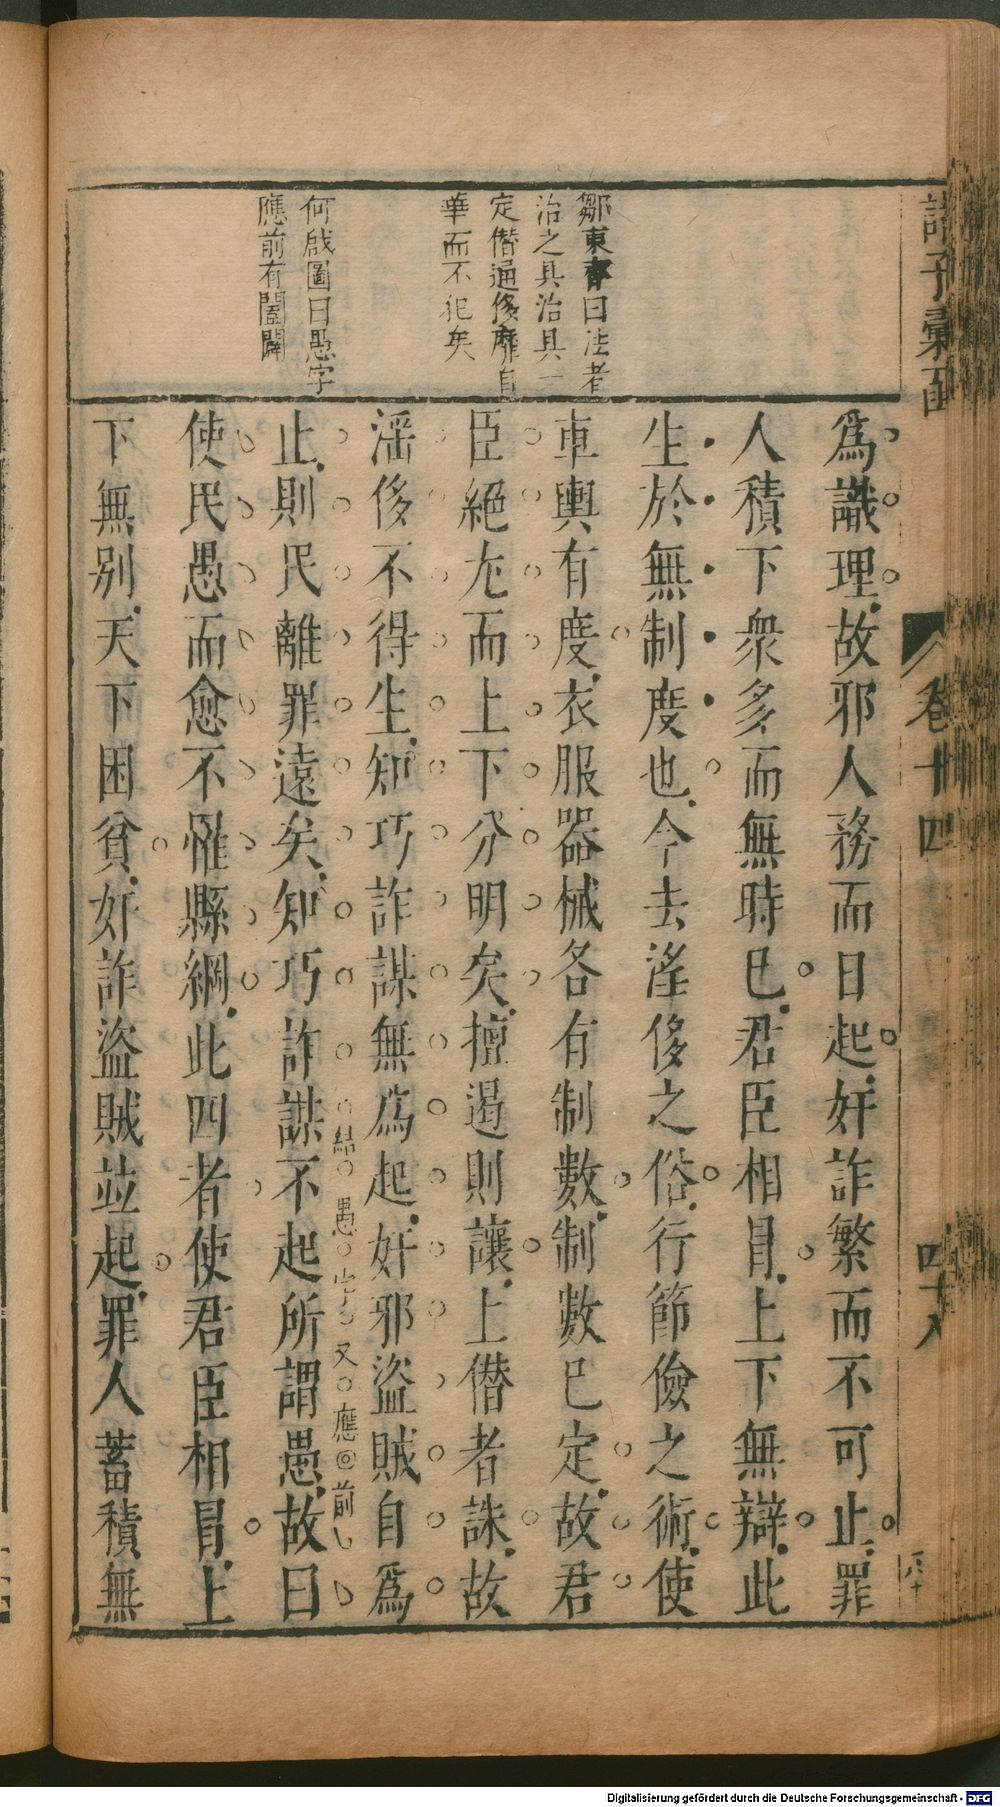 諸子彙函
卷十四
四十八
鄒東郭曰法者
治之具治具一
定僭逼侈靡自
華而不犯矣
何啟圖曰愚字
應前有闔闢
爲識理故邪人務而日起奸詐繁而不可止罪
人積下衆多而無時已君臣相冒上下無辯此
生於無制度也今去淫侈之俗行節儉之術使
車輿有度衣服器械各有制數制數已定故君
臣絕尤而上下分明矣擅遏則讓上僭者誅故
淫侈不得生知巧詐謀無爲起奸邪盜賊自爲
結愚字又應前
止則民離罪遠矣知巧詐謀不起所謂愚故曰
使民愚而愈不罹縣網此四者使君臣相冒上
下無別天下困貧奸詐盜賊並起罪人蓄積無
Digitalisierung gefördert durch die Deutsche Forschungsgemeinschaft - DFG